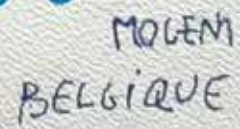 MOLENI
BELGIQUE